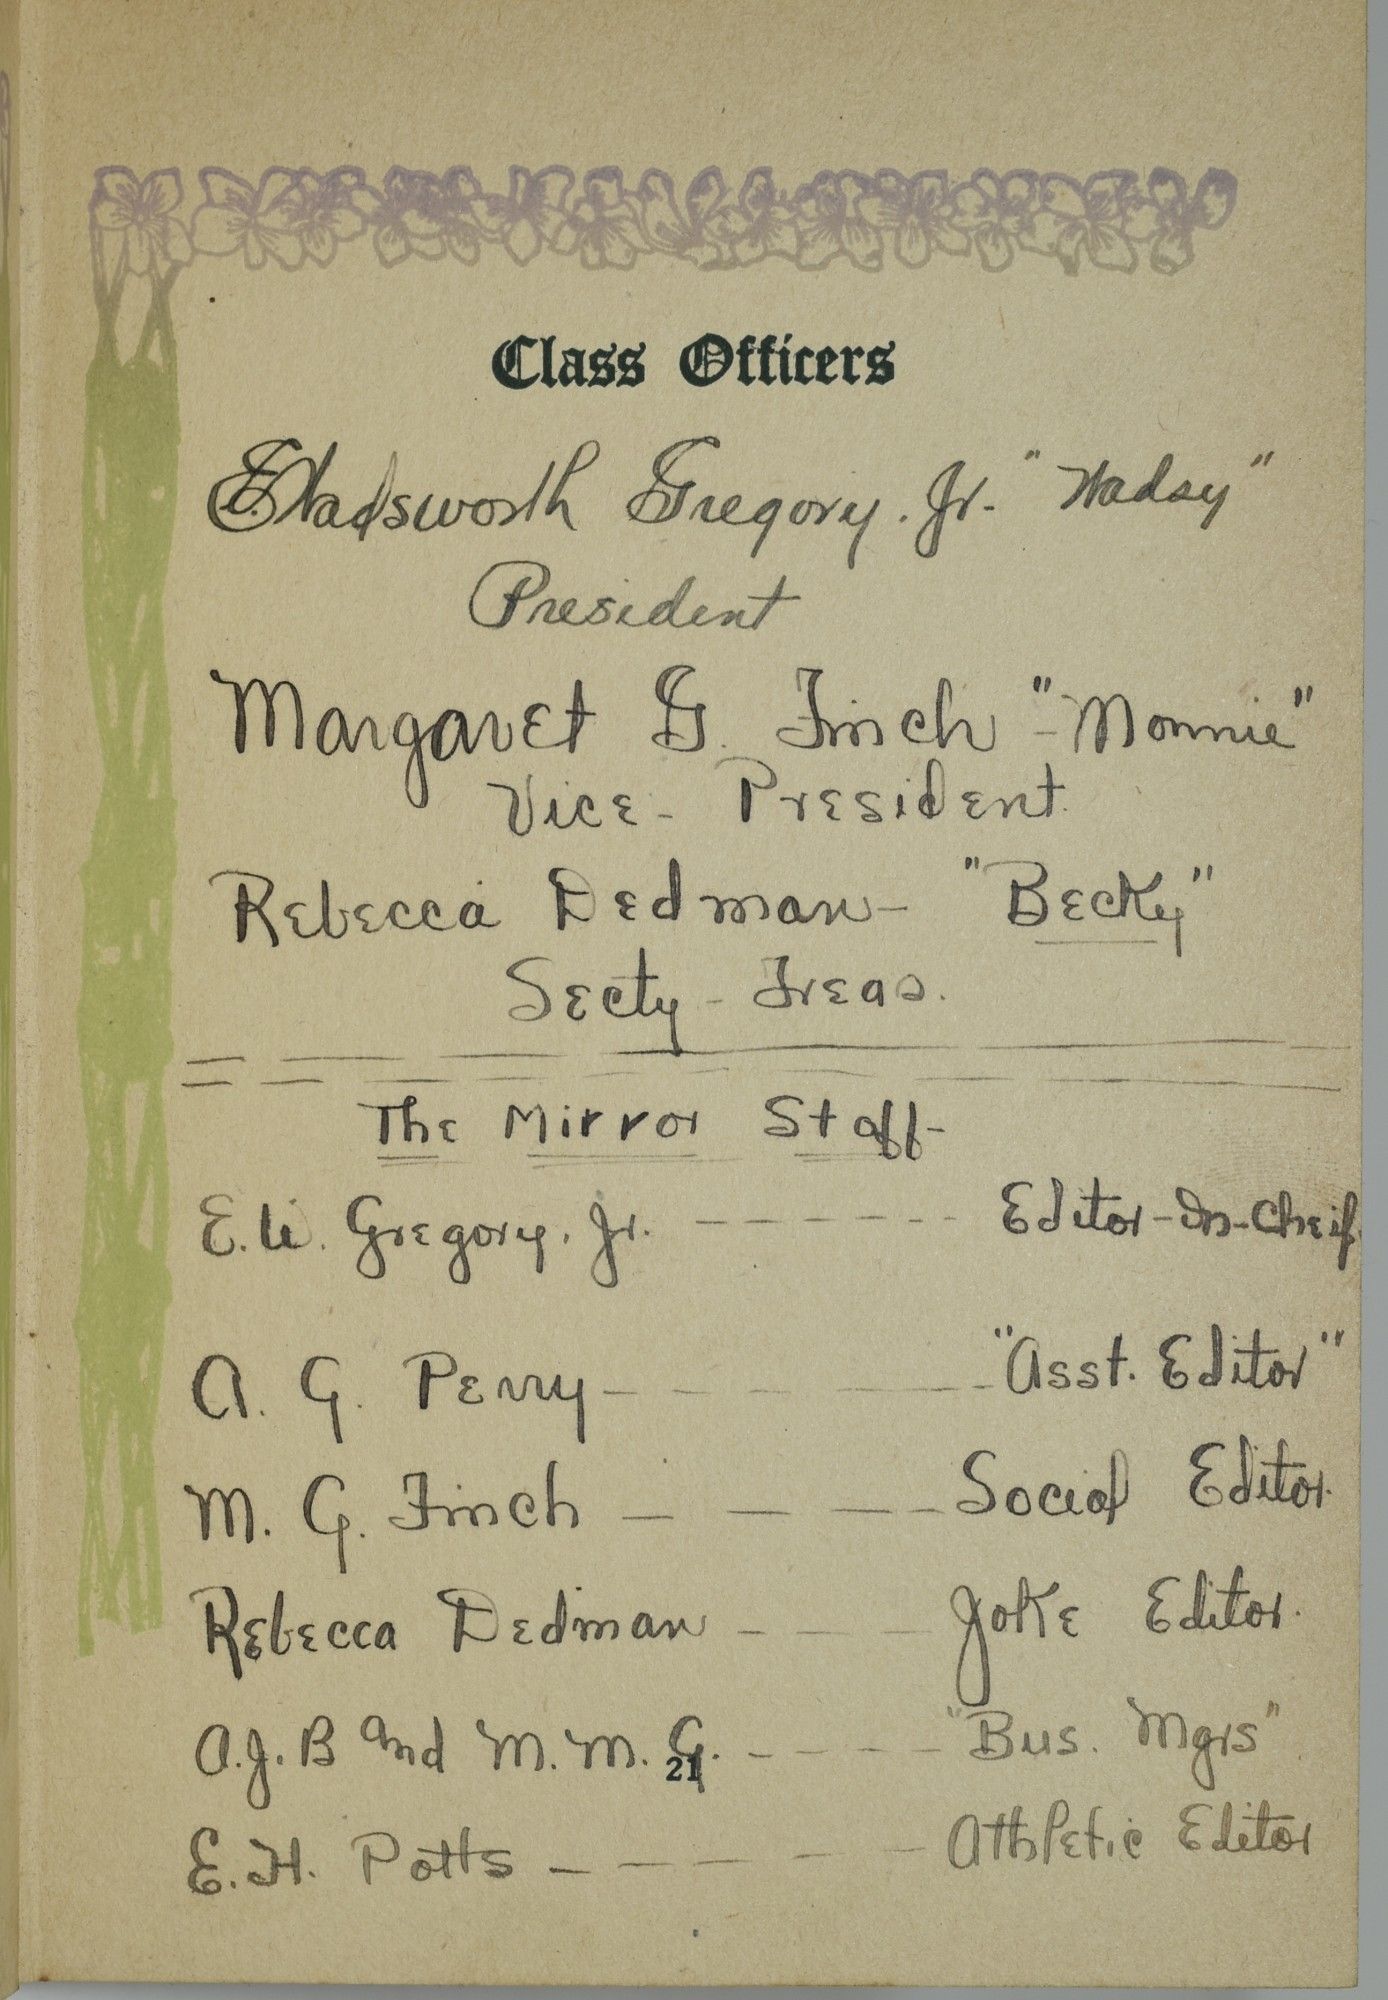 Class Officers
E. Wadsworth Gregory. Jr. "Wadsy"
President
Margaret G. Finch "-Monnie"
Vice - President
Rebecca Dedman - "Becky"
Secty - Treas.
The Mirror Staff -
E. W. Gregory, Jr. - - - - - - Editor-In-Cheif.
A. G. Perry - - - - - - "Asst. Editor"
M. G. Finch - - - - Social Editor.
Rebecca Dedman - - - - Joke Editor.
A.J.B and M. M. G. - - - - - "Bus. Mgrs"
21
E. H. Potts - - - - - - Athletic Editor